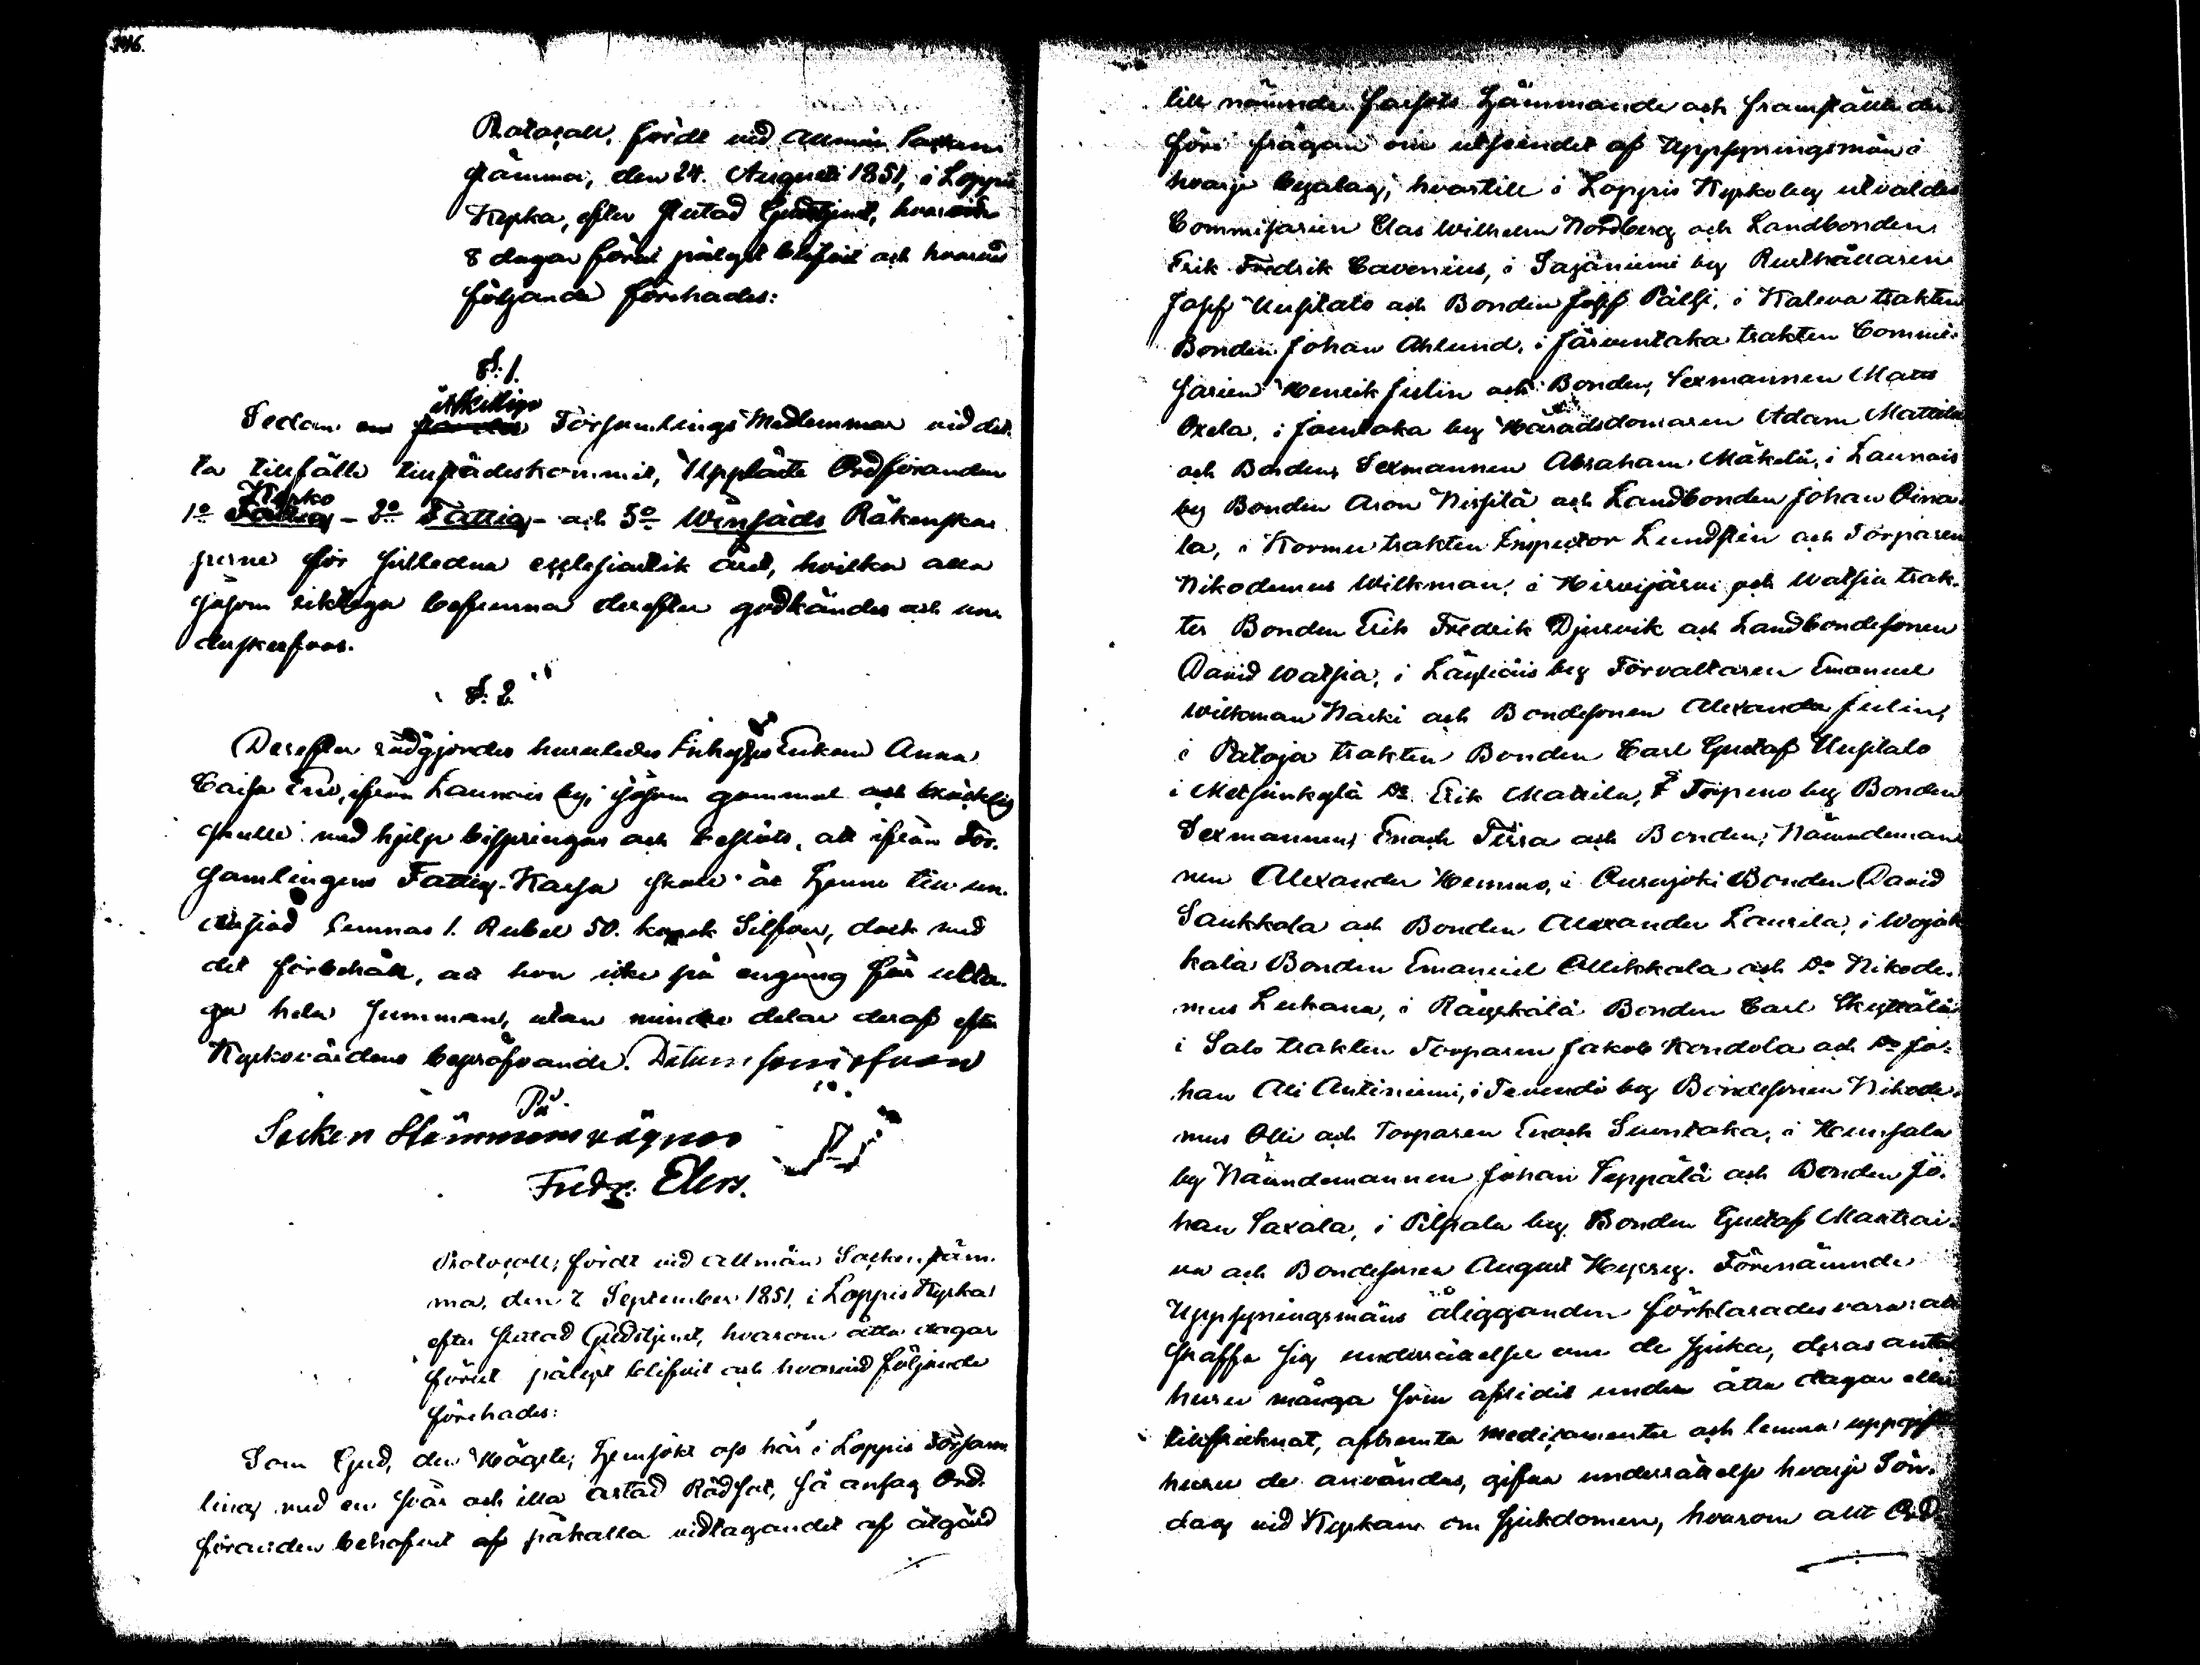 346.
Protocoll, fördt vid Allmän Socken
stämma, den 24. Augusti 1851, i Loppis
Kyrka, efter slutad Gudstjenst, hvarom
8 dagar förut pålyst blifvit och hvarvid
följande förehades:
§. 1.
Sedan åtskillige Församlings Medlemmar vid det-
ta tillfälle tillstädeskommit, Uppläste Ordföranden
1o Kyrko - 2o Fattig- och 3o Winsäds Räkenska-
perne för sistledna ecclesiastik året, hvilka alla
såsom riktiga befunna derefter godkändes och un-
derskrefvos.
§. 2.
Derefter rådgjordes huruledes Enkan Anna
Caisa ifrån Launois by, såsom gammal och bräcklig
skulle med hjelp bispringas och beslöts, att ifrån För-
samlingens Fattig-Kassa skall åt henne till un-
derstöd lemnas 1. Rubel 50. kopek Silfver, dock med
det förbehåll, att hon icke på engång får utta-
ga hela summan, utan mindre delar deraf efter
Kyrkovärdens bepröfvande. Datum som ofvan
På
Socken Stämmans vägnar
Fredr. Elers.
Protocoll, fördt vid allmän Sockenstäm-
ma, den 7 September 1851, i Loppis Kyrka
efter slutad Gudstjenst, hvarom åtta dagar
förut pålyst blifvit och hvarvid följande
förehades:
Som Gud, den Högste, hemsökt oss här i Loppis Församm-
ling med en svår och illa artad Rödsot, så ansåg Ord-
föranden behofvet af påkalla vidtagandet af åtgärd
till nämnde farsots hämmande och framställde der-
före frågan om utseendet af Uppsyningsmän i
hvarje byalag, hvartill i Loppis Kyrkoby utvaldes
Commissarien Clas Wilhelm Nordberg och Landbonden
Erik Fredrik Cavenius, i Sajaniemi by Rusthållaren
Josef Uusitalo och Bonden Josef Pälsi, i Kaleva trakten
Bonden Johan Ahlund, i Järventaka trakten Commis-
sarien Henrik Julin och Bonden, Sexmannen Matts
Oxela, i Joentaka by Häradsdomaren Adam Mattila
och Bonden, Sexmannen Abraham Mäkelä, i Launois
by Bonden Aron Nissilä och Landbonden Johan Oina-
la, i Kormu trakten Inspector Lundsten och Torparen
Nikodemus Wilkman, i Hirvijärvi och Watsia trak-
ter Bonden Erik Fredrik Djurvik och Landbondesonen
David Watsia, i Läyliäis by Förvaltaren Emanuel
Wilkman Narki och Bondesonen Alexander Julin,
i Pataja trakten Bonden Carl Gustaf Uusitalo
i Metsänkylä Do Erik Mattila, i Topeno by Bonden
Sexmannen, Enoch Tirra och Bonden, Nämndeman-
nen Alexander Hemmo, i Ourajoki Bonden David
Saukkola och Bonden Alexander Laurila, i Wojak-
kala Bonden Emanuel Ollikkala och Do Nikode-
mus Lukana, i Räyskälä Bonden Carl Skyttälä
i Salo trakten Torparen Jakob Kondola och Do Jo-
han Ali Antiniemi, i Tevendö by Bondesonen Nikode-
mus Olli och Torparen Enoch Suontaka, i Hunsala
by Nämndemannen Johan Seppälä och Bonden Jo-
han Saxala, i Pilpala by Bonden Gustaf Mantsai-
va och Bondesonen August Hyyry. Förenämnde
Uppsyningsmäns åligganden förklarades vara: att
skaffa sig underrättelse om de sjuka, deras antal
huru många som aflidit under åtta dagar eller
tillfrisknat, afhemta medicamenter och lemna uppgift
huru de användas, gifva underrättelse hvarje Sön-
dag vid Kyrkan om sjukdomen, hvarom allt Ord-